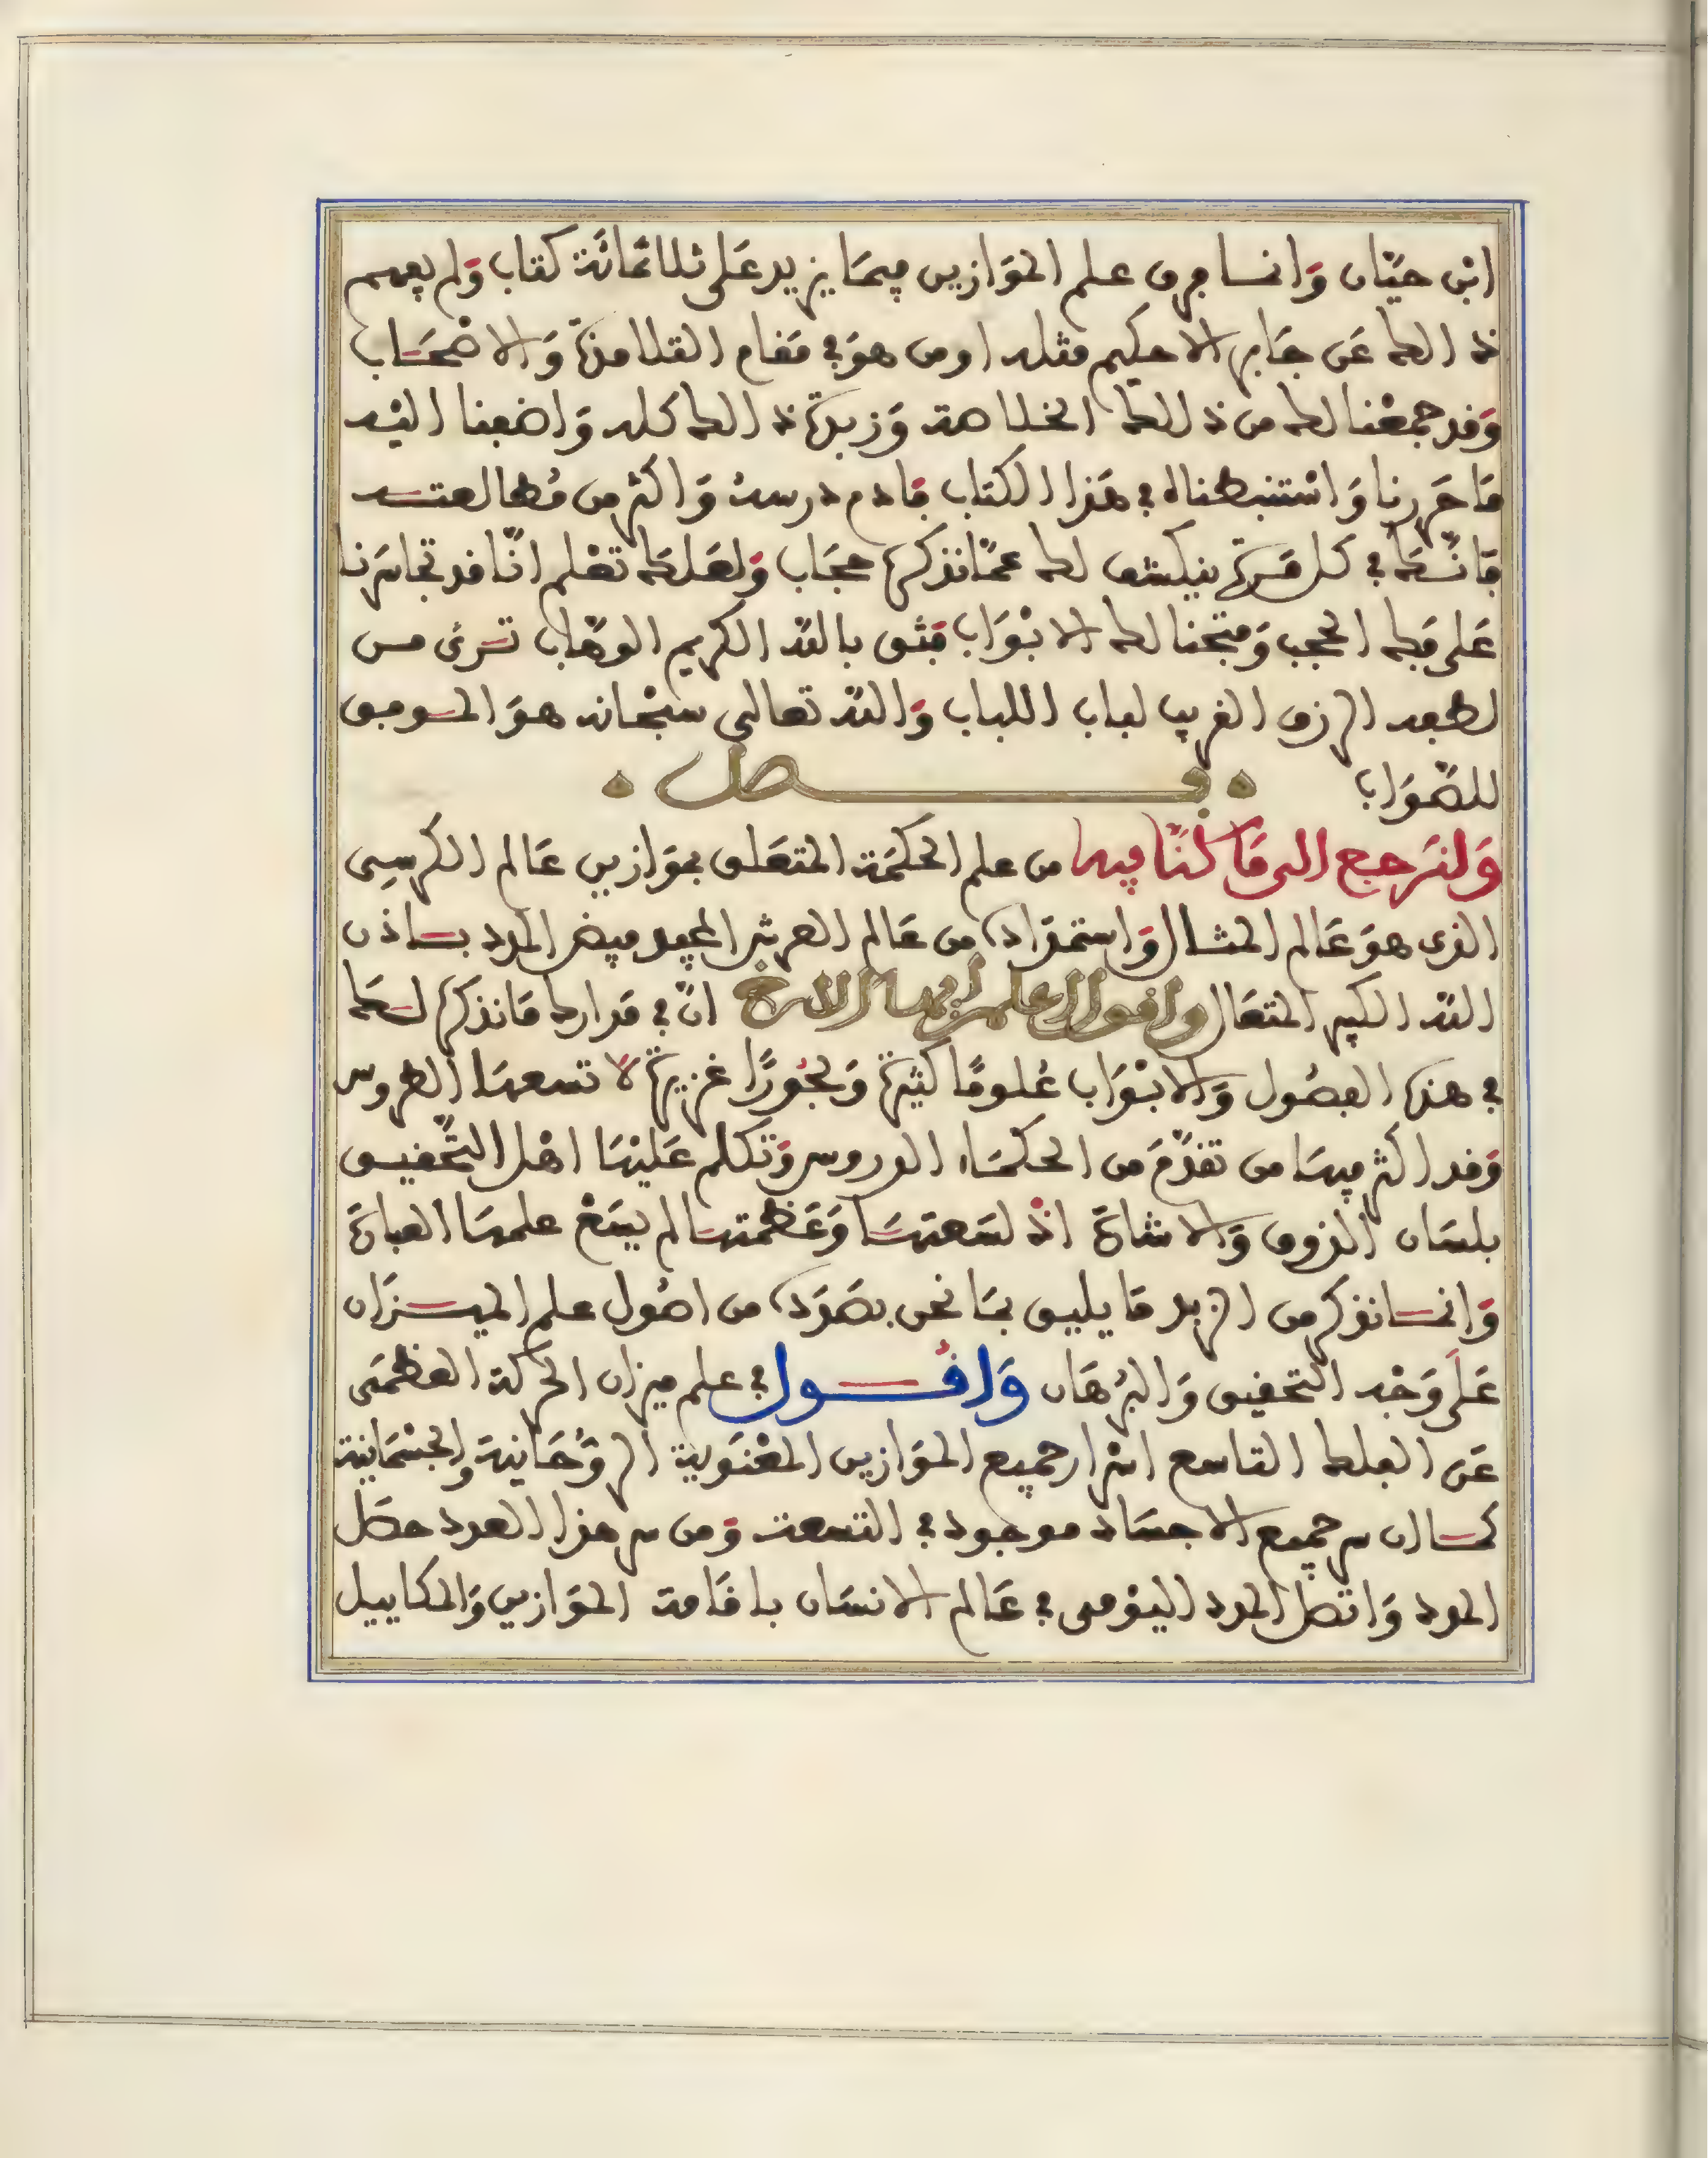 ابن حيّان وانما فرق علم الموازين فيما يزيد على ثلاثمائة كتاب ولم يفهم
ذالك عن جابر الا حكيم مثله او من هو في مقام التلامذة والاصحاب
وقد جمعنا لك من ذالك الخلاصة وزبدة ذالك كله واضفنا اليه
ما حررنا واستنبطناه في هذا الكتاب فادم درسه واكثر من مطالعته
فانك في كل مرة ينكشف لك عما نذكره حجاب ولعلك تعلم انّا قد تجاسرنا
على فك الحجب وفتحنا لك الابواب فثق بالله الكريم الوهاب ترى من
لطفه الرزق القريب لباب اللباب والله تعالى سبحانه هو الموفق
للصواب فصل
ولنرجع الى ما كنا فيه من علم الحكمة المتعلق بموازين عالم الكرسي
الذي هو عالم المثال واستمداده من عالم العرش المجيد فيض المدد باذن
الله الكبير المتعال واقول اعلم ايها الاخ انّ في مدارك ما نذكره لك
في هذه الفصول والابواب علومًا كثيرة وبحورًا غزيرة لا تسعها الطروس
وقد اكثر فيها من تقدّم من الحكماء الدروس وتكلم عليها اهل التحقيق
بلسان الذوق والاشارة اذ لسعتها وعظمتها لم يسغ علمها العبارة
وانما نذكر من الزبد ما يليق بما نحن بصدده من اصول علم الميزان
على وجه التحقيق والبرهان واقول في علم ميزان الحركة العظمى
عن الفلك التاسع اسرار جميع الموازين المعنوية الروحانية والجسمانية
كما ان سر جميع الاجساد موجود في التسعة ومن سر هذا العدد حصل
المدد واتصل المدد اليومي في عالم الانسان باقامة الموازين والمكاييل